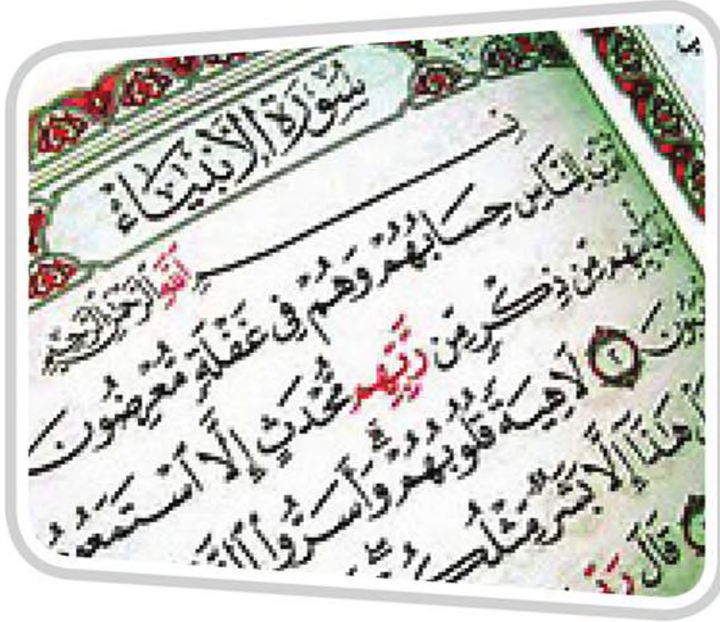 سُورَةُ الأَنْبِيَاءِ
بِسْمِ اللَّهِ الرَّحْمَٰنِ الرَّحِيمِ
لِلنَّاسِ حِسَابُهُمْ وَهُمْ فِي غَفْلَةٍ مُعْرِضُونَ
مِنْ ذِكْرٍ مِنْ رَبِّهِمْ مُحْدَثٍ إِلَّا اسْتَمَعُو
لَاهِيَةً قُلُوبُهُمْ وَأَسَرُّوا
هَٰذَا إِلَّا بَشَرٌ مِثْلُكُ
قَالَ